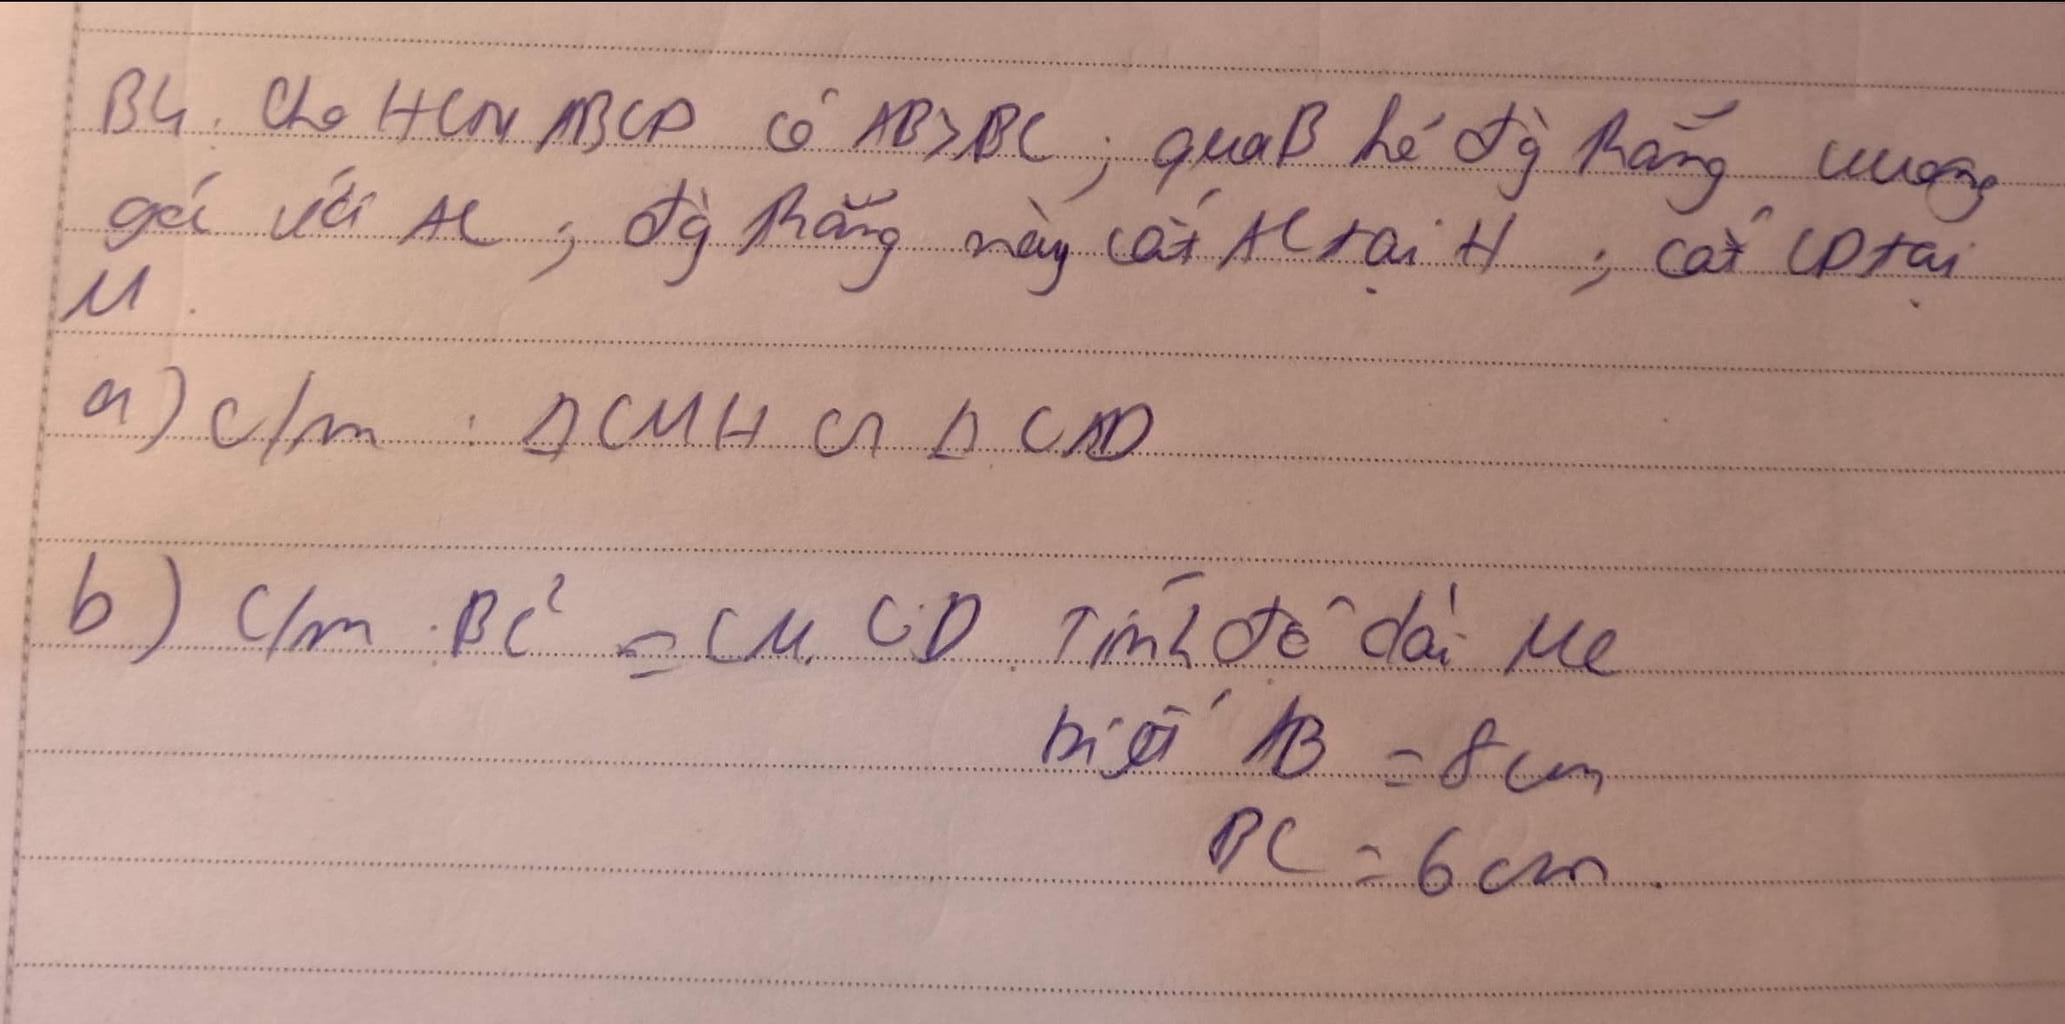 B4. Cho HCN ABCD có AB>BC ; qua B kẻ đg thẳng vuông
góc với AC ; đg thẳng này cắt AC tại H ; cắt CD tại
M.
a) c/m : Δ CMH ∽ Δ CAD
b) C/m : BC² = CM. CD. Tính độ dài MC
biết AB = 8cm
BC = 6cm.